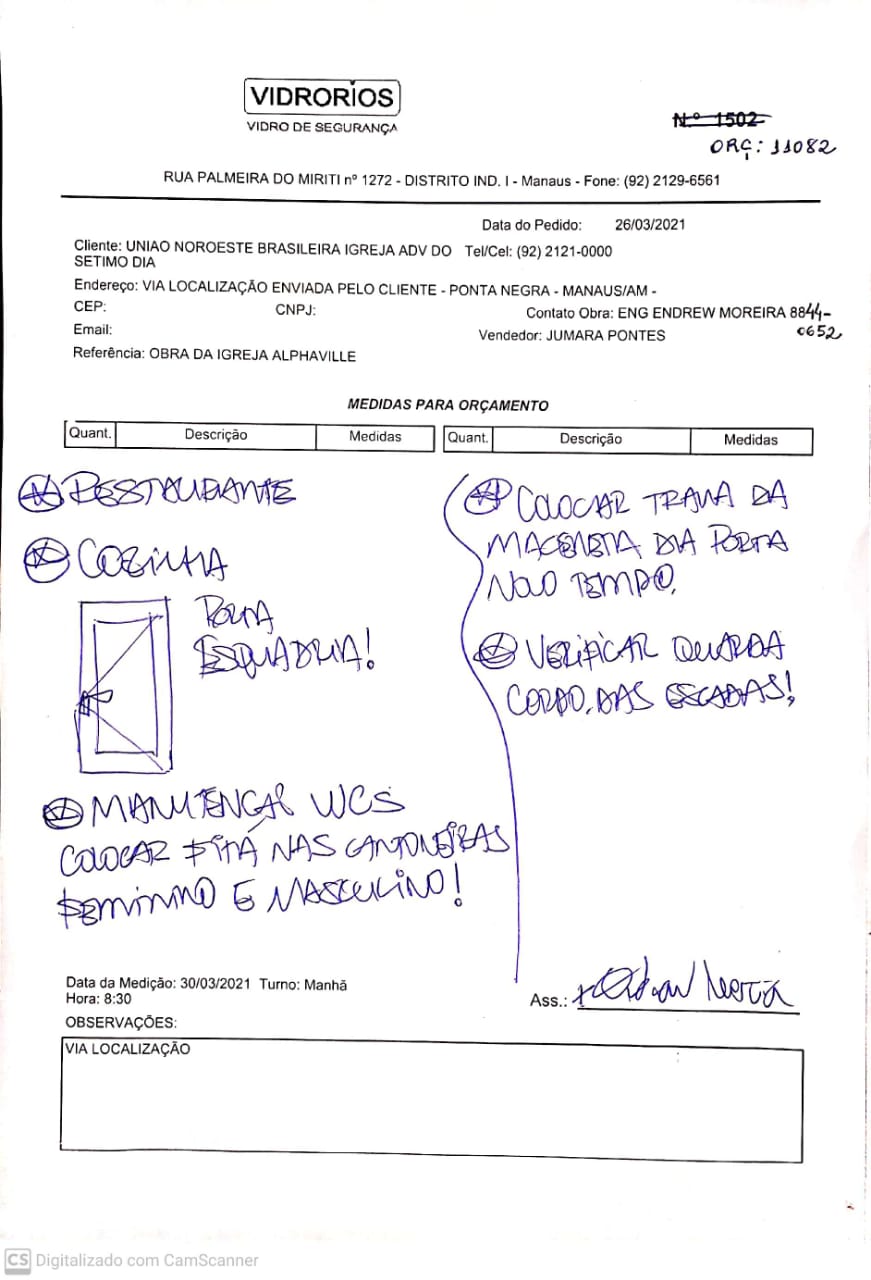 VIDRORIOS
VIDRO DE SEGURANÇA
N.º 1502
ORÇ: 11082
RUA PALMEIRA DO MIRITI nº 1272 - DISTRITO IND. I - Manaus - Fone: (92) 2129-6561
Data do Pedido: 26/03/2021
Cliente: UNIAO NOROESTE BRASILEIRA IGREJA ADV DO Tel/Cel: (92) 2121-0000
SETIMO DIA
Endereço: VIA LOCALIZAÇÃO ENVIADA PELO CLIENTE - PONTA NEGRA - MANAUS/AM -
CEP: CNPJ: Contato Obra: ENG ENDREW MOREIRA 8844-
0652
Email: Vendedor: JUMARA PONTES
Referência: OBRA DA IGREJA ALPHAVILLE
MEDIDAS PARA ORÇAMENTO
Quant. Descrição Medidas Quant. Descrição Medidas
RESTAURANTE
COZINHA
PORTA
ESQUADRIA!
MANUTENÇAO WCS
COLOCAR FITA NAS CANTONEIRAS
FEMININO E MASCULINO!
COLOCAR TRAVA DA
MACENETA DA PORTA
NOVO TEMPO.
VERIFICAR GUARDA
CORPO. DAS ESCADAS!
Data da Medição: 30/03/2021 Turno: Manhã
Hora: 8:30
Ass.:
OBSERVAÇÕES:
VIA LOCALIZAÇÃO
CS Digitalizado com CamScanner